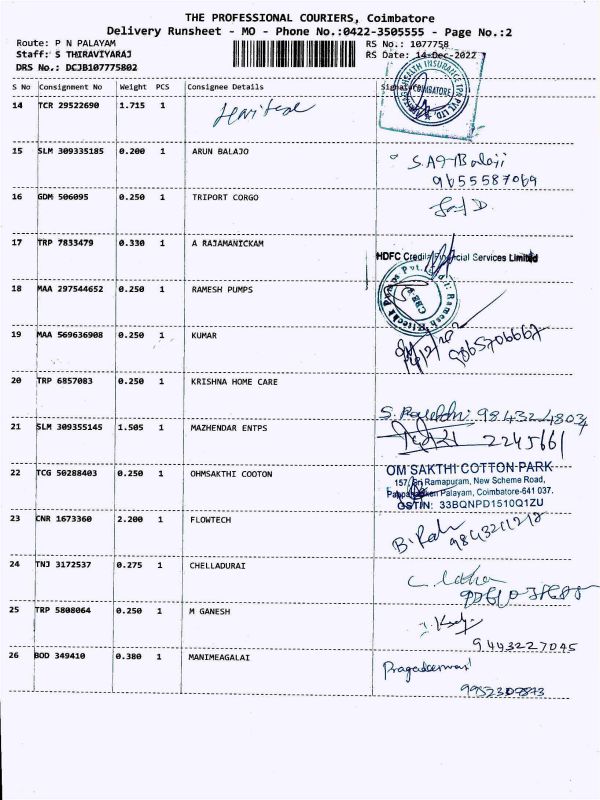 THE PROFESSIONAL COURIERS, Coimbatore
Delivery Runsheet - MO - Phone No.:0422-3505555 - Page No.:2
Route: P N PALAYAM
RS No.: 1077758
Staff: S THIRAVIYARAJ
RS Date: 14-Dec-2022
DRS No.: DCJB107775802
S No Consignment No Weight PCS Consignee Details Signature
COIMBATORE
14 TCR 29522690 1.715 1
15 SLM 309335185 0.200 1 ARUN BALAJO
9655587069
16 GDM 506095 0.250 1 TRIPORT CORGO
17 TRP 7833479 0.330 1 A RAJAMANICKAM
HDFC Credila Financial Services Limited
18 MAA 297544652 0.250 1 RAMESH PUMPS
19 MAA 569636908 0.250 1 KUMAR
9865706667
20 TRP 6857083 0.250 1 KRISHNA HOME CARE
21 SLM 309355145 1.505 1 MAZHENDAR ENTPS
2245661
22 TCG 50288403 0.250 1 OHMSAKTHI COOTON
OM SAKTHI COTTON PARK
157, Sri Ramapuram, New Scheme Road,
Palayam, Coimbatore-641 037.
GSTIN: 33BQNPD1510Q1ZU
23 CNR 1673360 2.200 1 FLOWTECH
24 TNJ 3172537 0.275 1 CHELLADURAI
25 TRP 5808064 0.250 1 M GANESH
9443227045
26 BOD 349410 0.380 1 MANIMEAGALAI